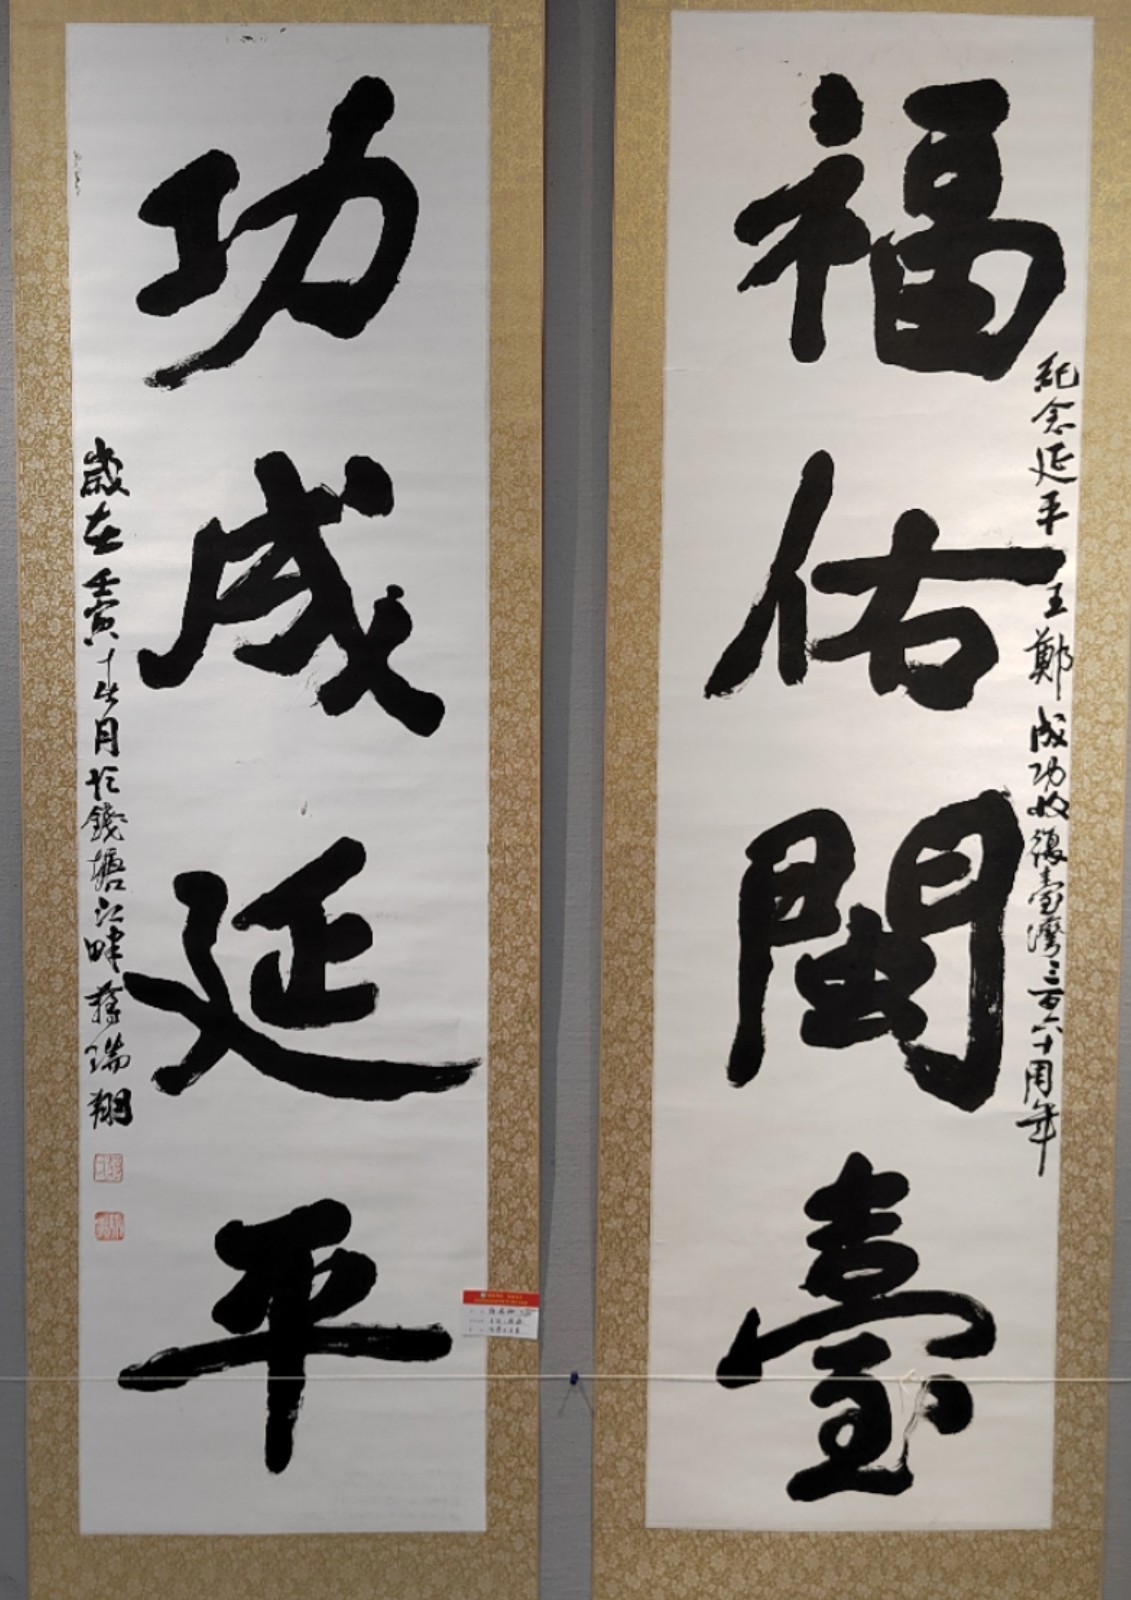 福佑閩臺
紀念延平王鄭成功收復臺灣三百六十周年
功成延平
歲在壬寅十七月於錢塘江畔蔣瑞翔